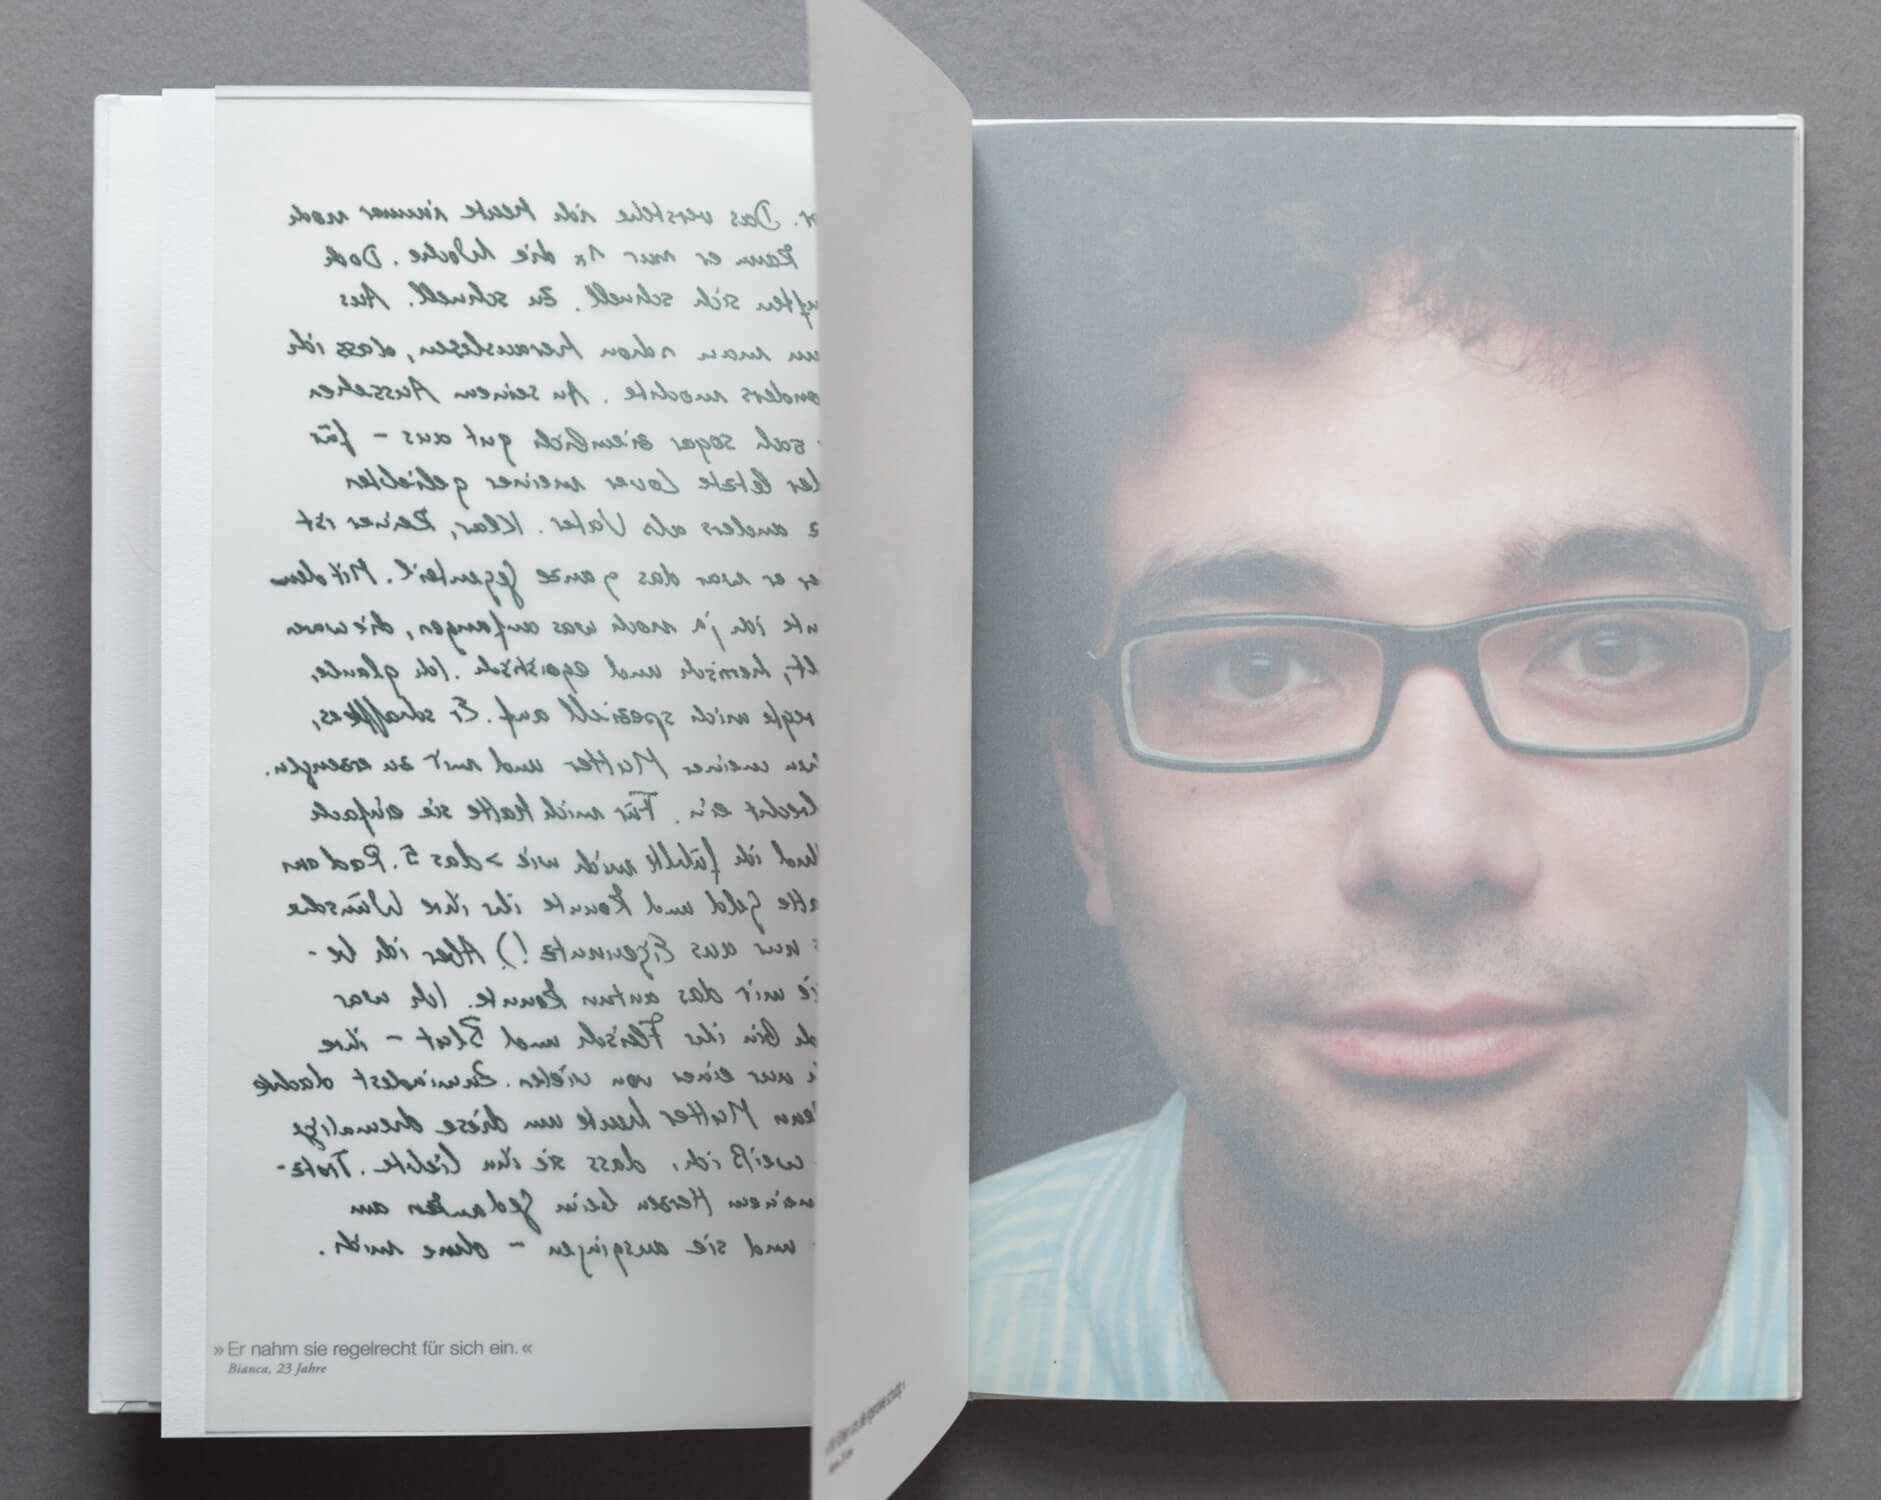 Das verstehe ich heute immer noch
kann er nur 1x die Woche. Doch
sich schnell. Zu schnell. Aus
man schon herauslesen, dass ich
mochte. An seinem Aussehen
sah sogar ziemlich gut aus – für
letzte Lover meiner geliebten
anders als Vater. Klar, keiner ist
er war das ganze Gegenteil. Mit den
ich ja noch was anfangen, die waren
herrisch und egoistisch. Ich glaube,
regte mich speziell auf. Er schaffte es,
meiner Mutter und mir zu erzeugen.
ein. Für mich hatte sie einfach
Und ich fühlte mich wie >das 5. Rad am
Geld und konnte ihr ihre Wünsche
nur aus Eigennutz!) Aber ich be-
mir das antun konnte. Ich war
bin ihr Fleisch und Blut – ihre
nur einer von vielen. Zumindest dachte
Mutter heute um diese ehemalige
weiß ich, dass sie ihn liebte. Trotz-
meinem Herzen beim Gedanken an
und sie ausgingen – ohne mich.
»Er nahm sie regelrecht für sich ein.«
Bianca, 23 Jahre